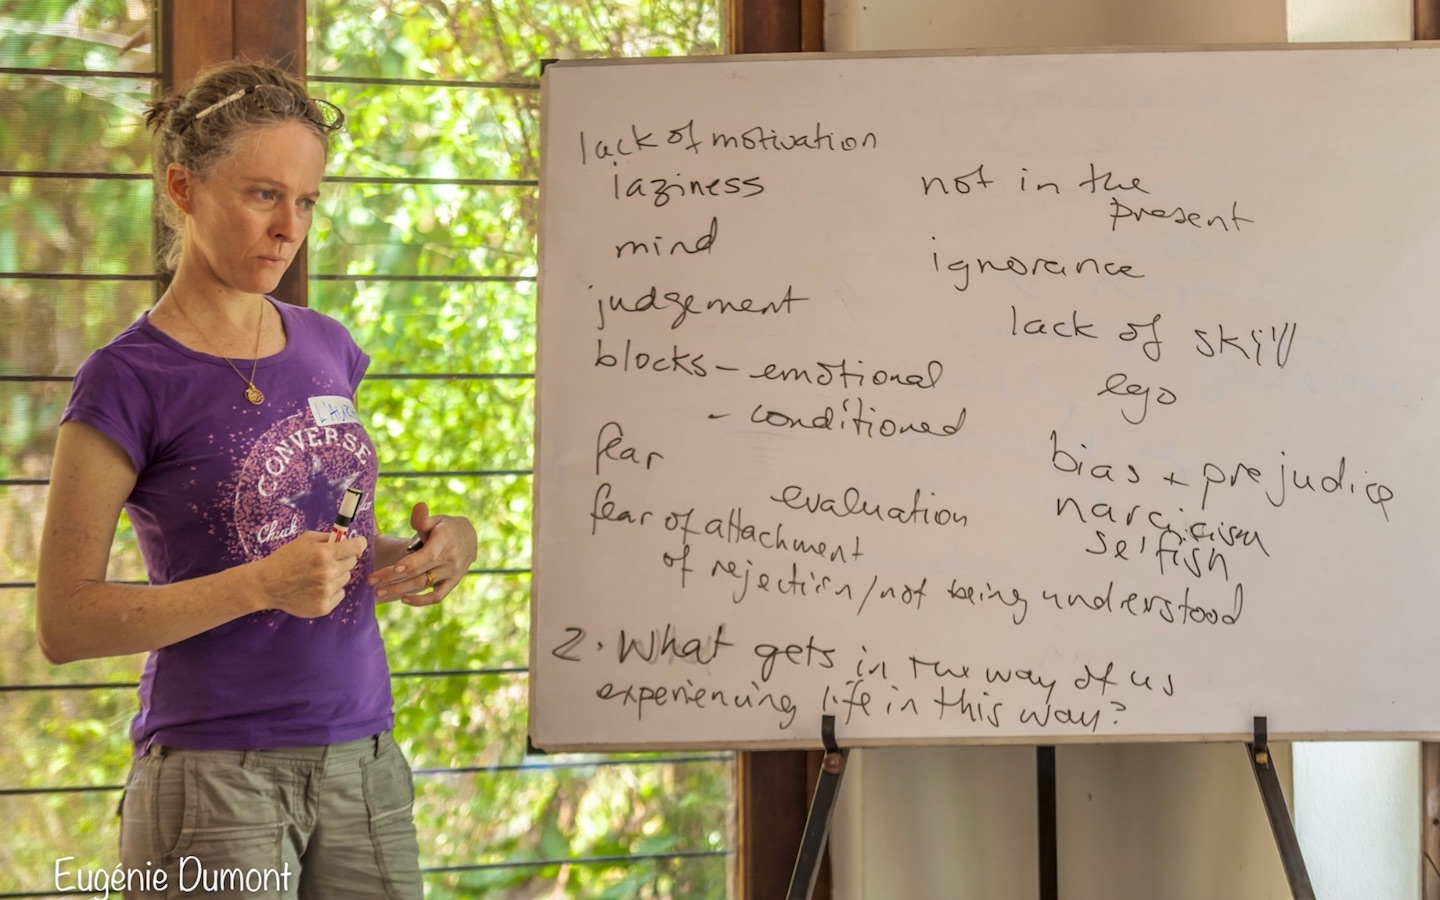 lack of motivation
laziness
mind
judgement
blocks - emotional
- conditioned
fear
evaluation
fear of attachment
of rejection/not being understood
not in the
present
ignorance
lack of skill
ego
bias + prejudice
narcicism
selfish
2. What gets in the way of us
experiencing life in this way?
CONVERSE
Chuck
Eugénie Dumont